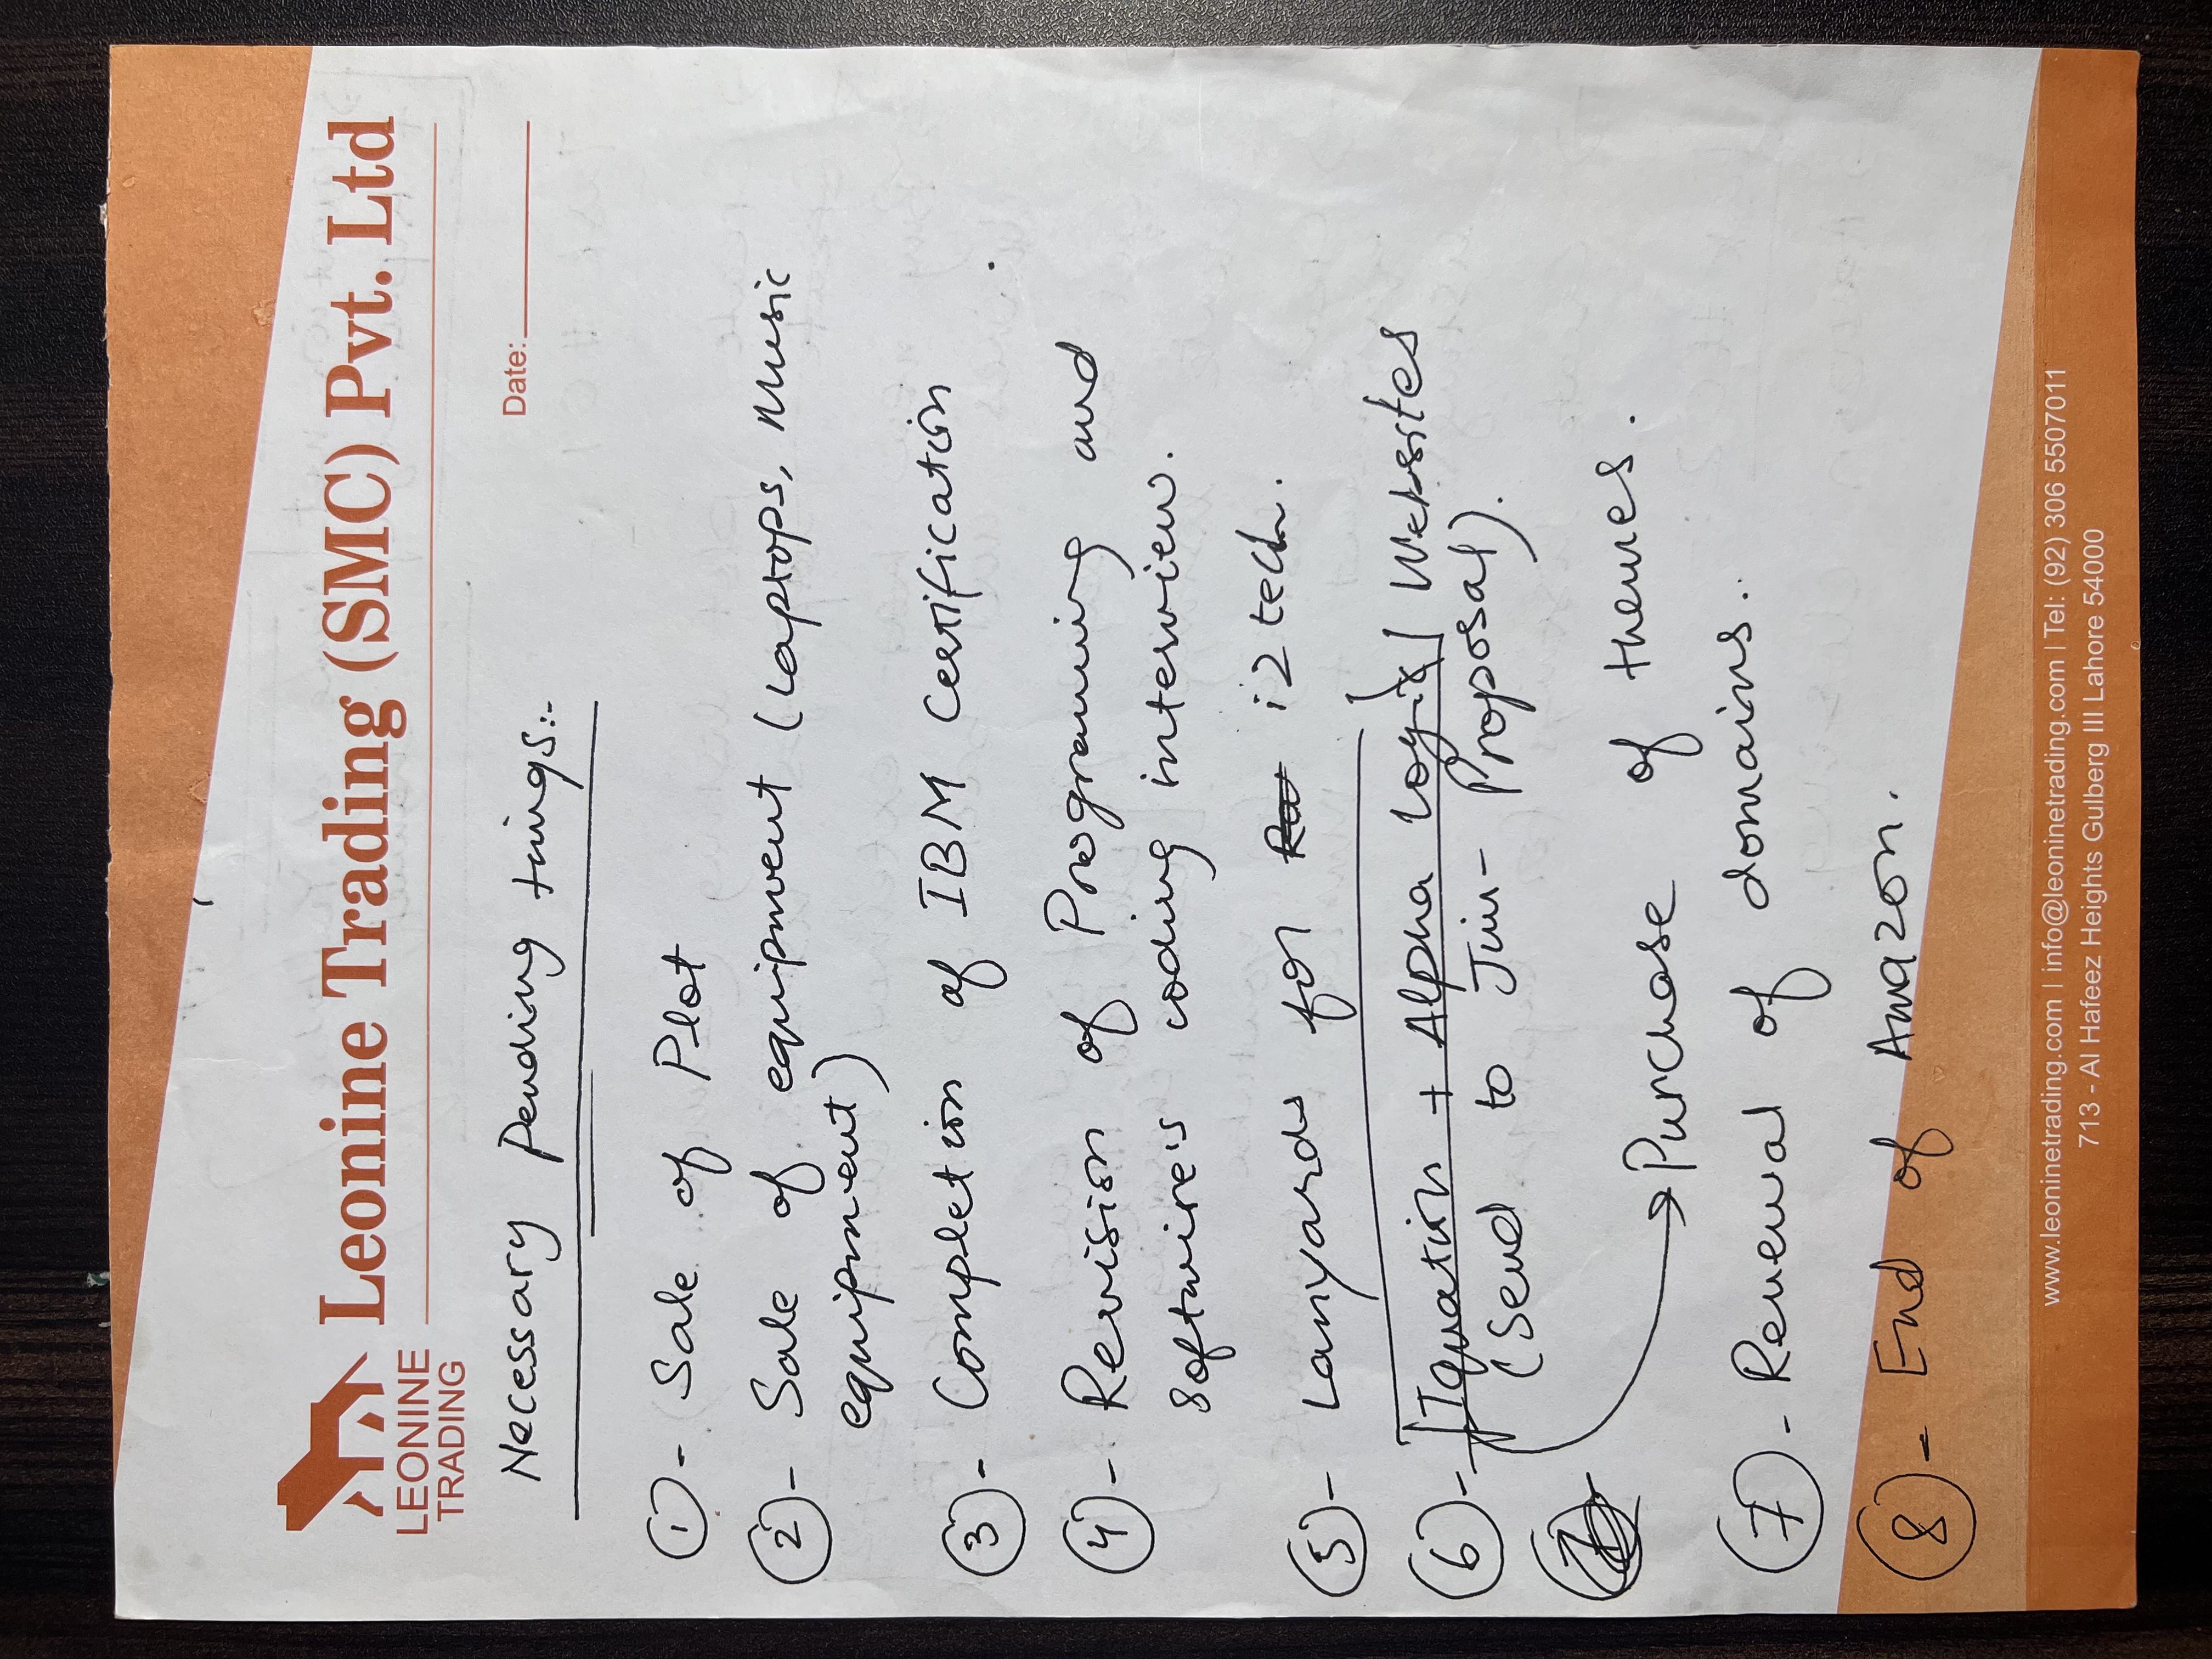 LEONINE
TRADING
Leonine Trading (SMC) Pvt. Ltd
Date:
Necessary Pending things:-
1 - Sale of Plot
2 - Sale of equipment (Laptops, Music
equipment)
3 - Completion of IBM Certification
4 - Revision of Programing and
software's coding interview.
5 - Lanyards for i2 tech.
6 - Iquation + Alpha Logix Websites
(Send to Jin- Proposal).
Purchase of themes.
7 - Renewal of domains..
8 - End of Amazon.
www.leoninetrading.com | info@leoninetrading.com | Tel: (92) 306 5507011
713 - Al Hafeez Heights Gulberg III Lahore 54000